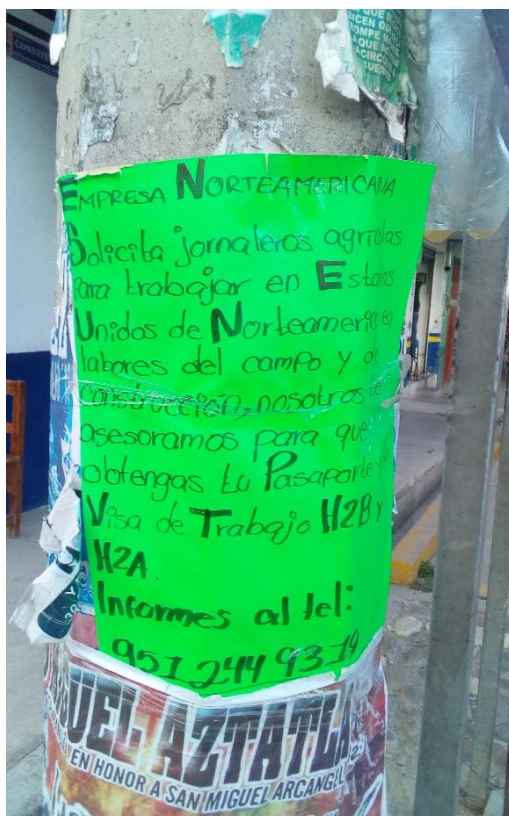 CONSTIT
QUE
ICEN QU
ROMPE
AQUE
CIRCO
CUEN
EMPRESA NORTEAMERICANA
Solicita jornaleros agrícolas
para trabajar en Estados
Unidos de Norteamerica en
labores del campo y
construcción, nosotros te
asesoramos para que
obtengas tu Pasaporte y
Visa de Trabajo H2B y
H2A.
Informes al tel:
951 244 93 19
GUEL AZTATLA
EN HONOR A SAN MIGUEL ARCANGEL